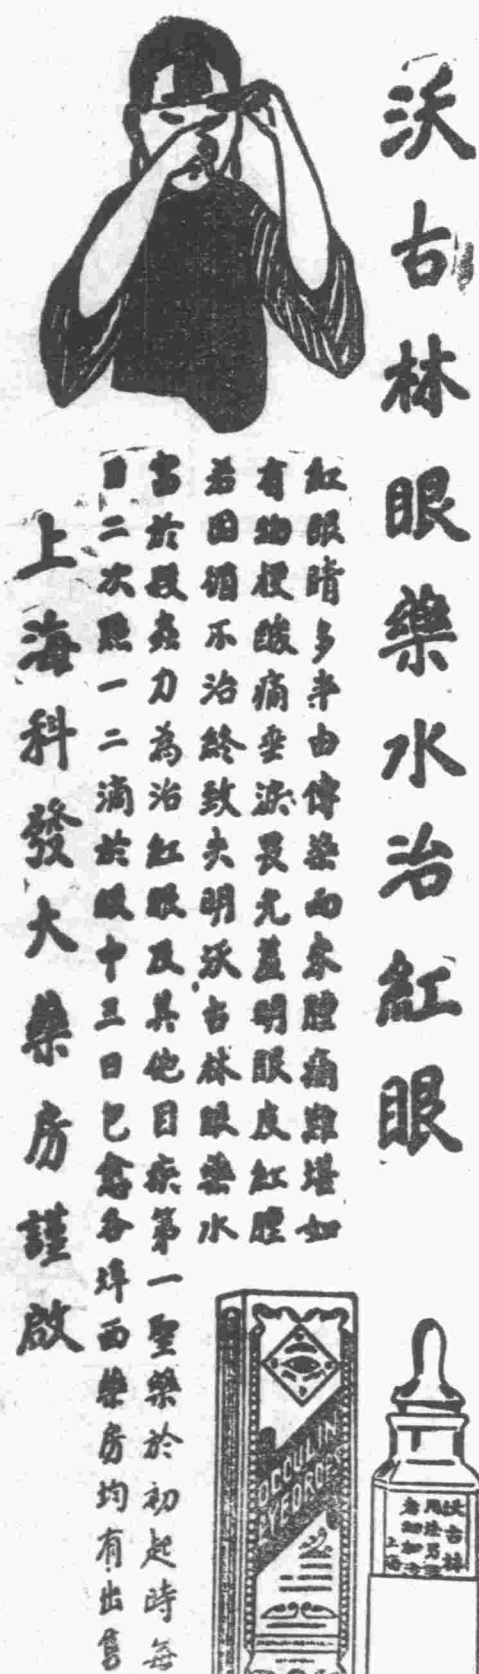 沃古林眼藥水治紅眼
紅眼睛多半由傳染而來腫痛難堪如
有物梗酸痛垂淚畏光羞明眼皮紅腫
若因循不治終致失明沃古林眼藥水
富於殺蟲力為治紅眼及其他目疾第一聖藥於初起時每
日二次點一二滴於眼中三日包愈各埠西藥房均有出售
上海科發大藥房謹啟
OCCULIN
EYEDROPS
沃古林
上海